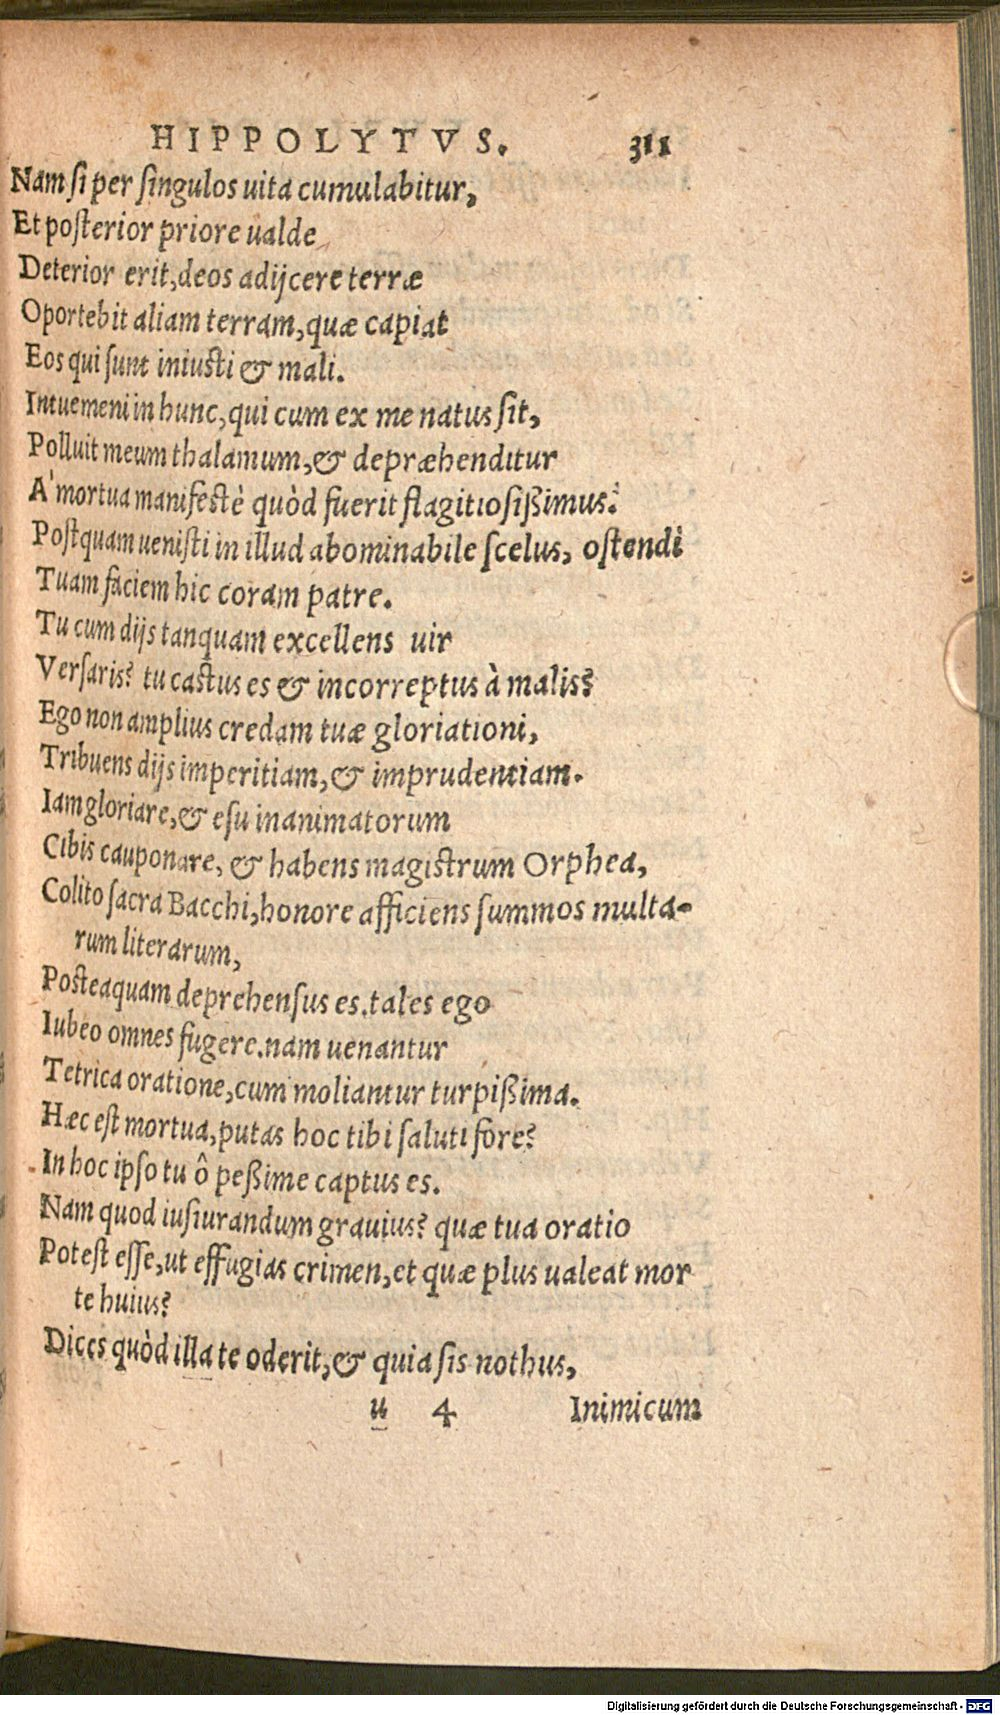 HIPPOLYTVS. 311
Nam si per singulos uita cumulabitur,
Et posterior priore ualde
Deterior erit, deos adijcere terræ
Oportebit aliam terram, quæ capiat
Eos qui sunt iniusti & mali.
Intuemeni in hunc, qui cum ex me natus sit,
Polluit meum thalamum, & depræhenditur
A' mortua manifestè quòd fuerit flagitiosißimus?
Postquam uenisti in illud abominabile scelus, ostendi
Tuam faciem hic coram patre.
Tu cum dijs tanquam excellens uir
Versaris? tu castus es & incorreptus à malis?
Ego non amplius credam tuæ gloriationi,
Tribuens dijs imperitiam, & imprudentiam.
Iam gloriare, & esu inanimatorum
Cibis cauponare, & habens magistrum Orphea,
Colito sacra Bacchi, honore afficiens summos multa-
rum literarum,
Posteaquam deprehensus es. tales ego
Iubeo omnes fugere. nam uenantur
Tetrica oratione, cum moliantur turpißima.
Hæc est mortua, putas hoc tibi saluti fore?
In hoc ipso tu ô peßime captus es.
Nam quod iusiurandum grauius? quæ tua oratio
Potest esse, ut effugias crimen, et quæ plus ualeat mor
te huius?
Dices quòd illa te oderit, & quia sis nothus,
u 4 Inimicum
Digitalisierung gefördert durch die Deutsche Forschungsgemeinschaft - DFG